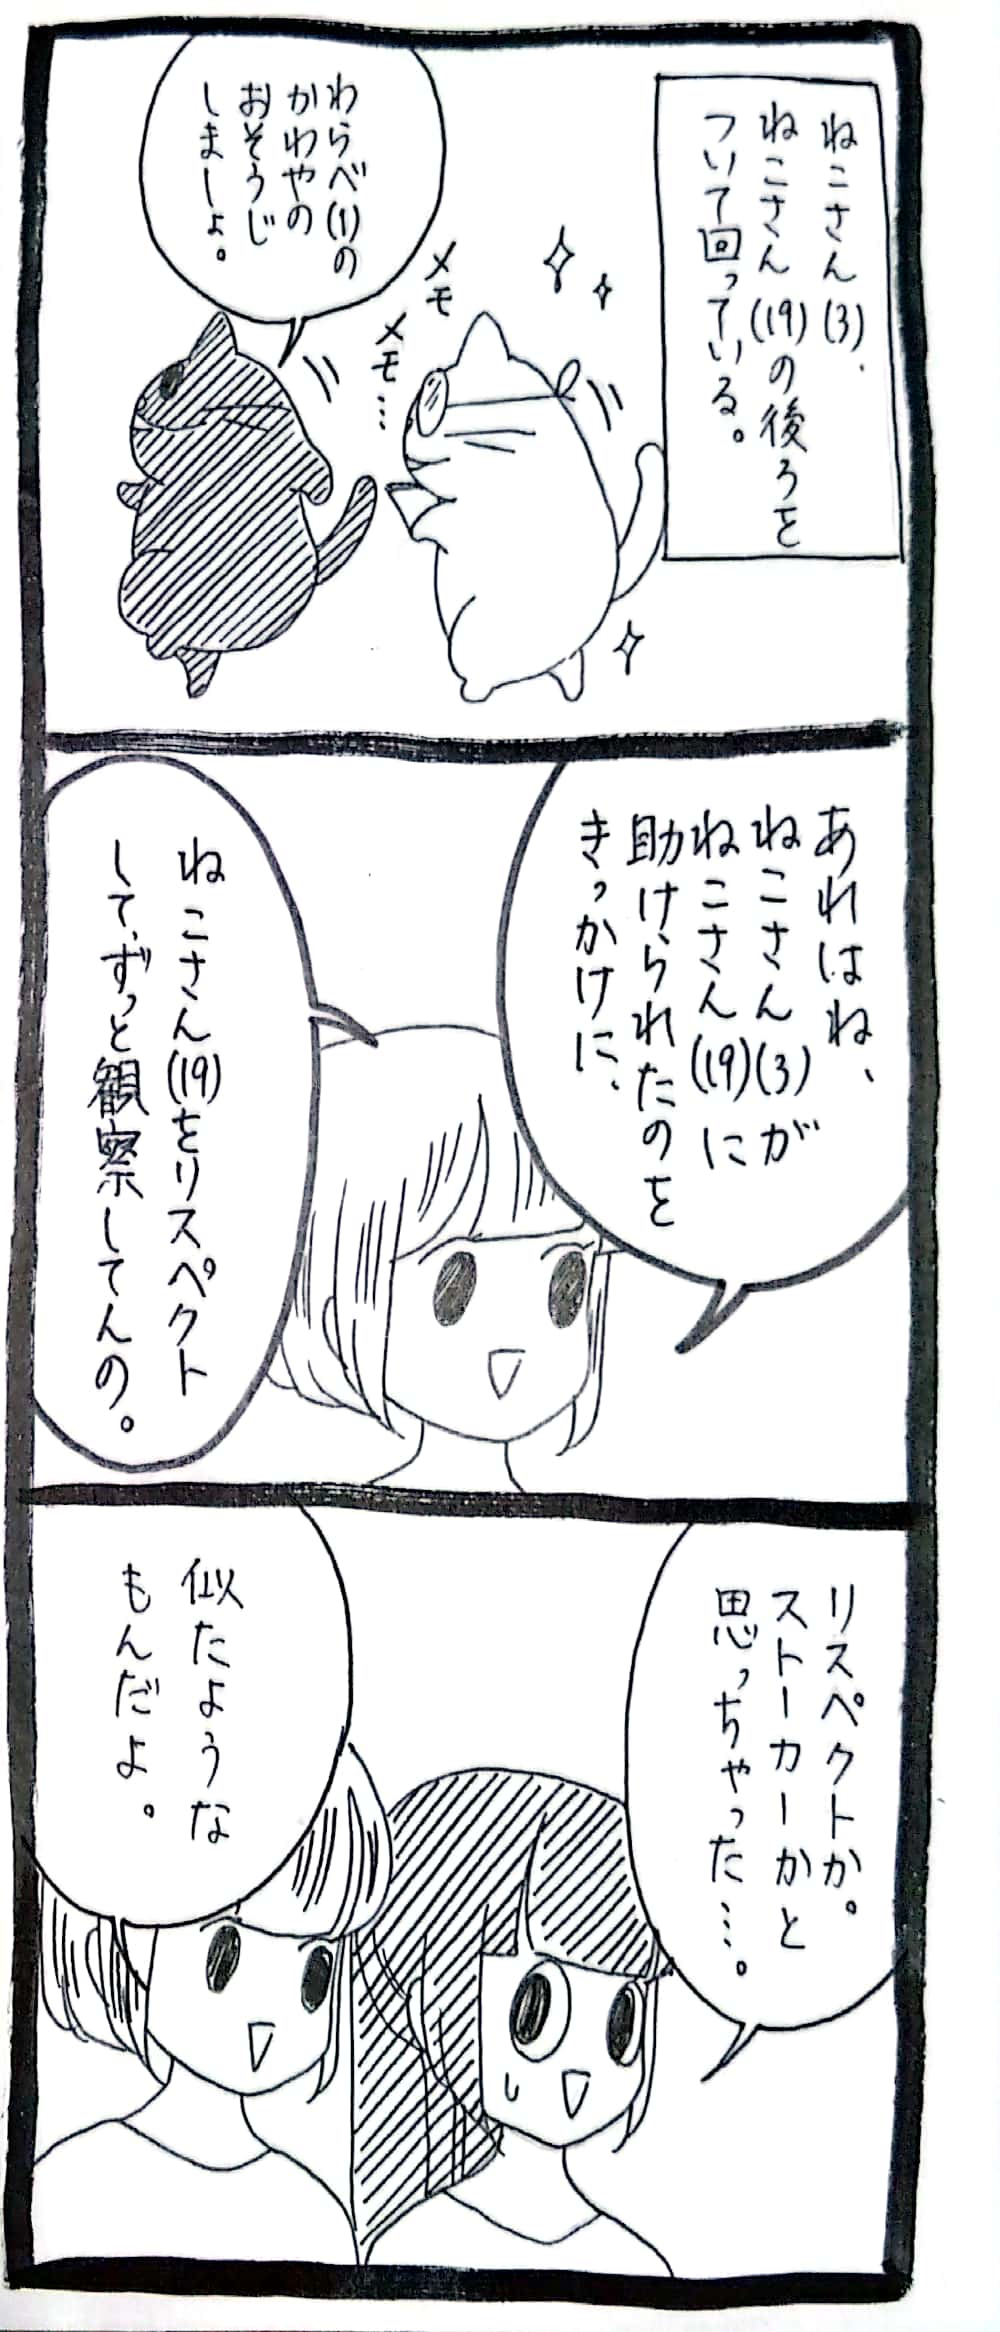 ねこさん(3)、
ねこさん(19)の後ろを
ついて回っている。
メモ
メモ…
わらべ(1)の
かわやの
おそうじ
しましょ。
あれはね、
ねこさん(3)が
ねこさん(19)に
助けられたのを
きっかけに、
ねこさん(19)をリスペクト
して、ずっと観察してんの。
リスペクトか。
ストーカーかと
思っちゃった…。
似たような
もんだよ。